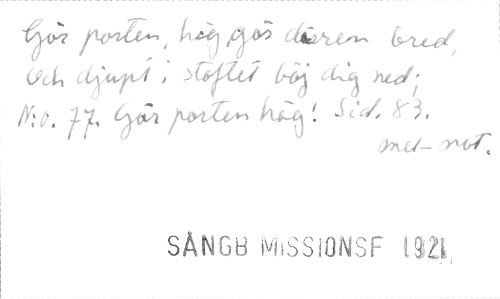 Gör porten hög, gör dören bred,
Och djupt i stoftet böj dig ned;
N:o. 77. Gör porten hög! Sid. 83.
mel-not.
SÅNGB MISSIONSF 1921